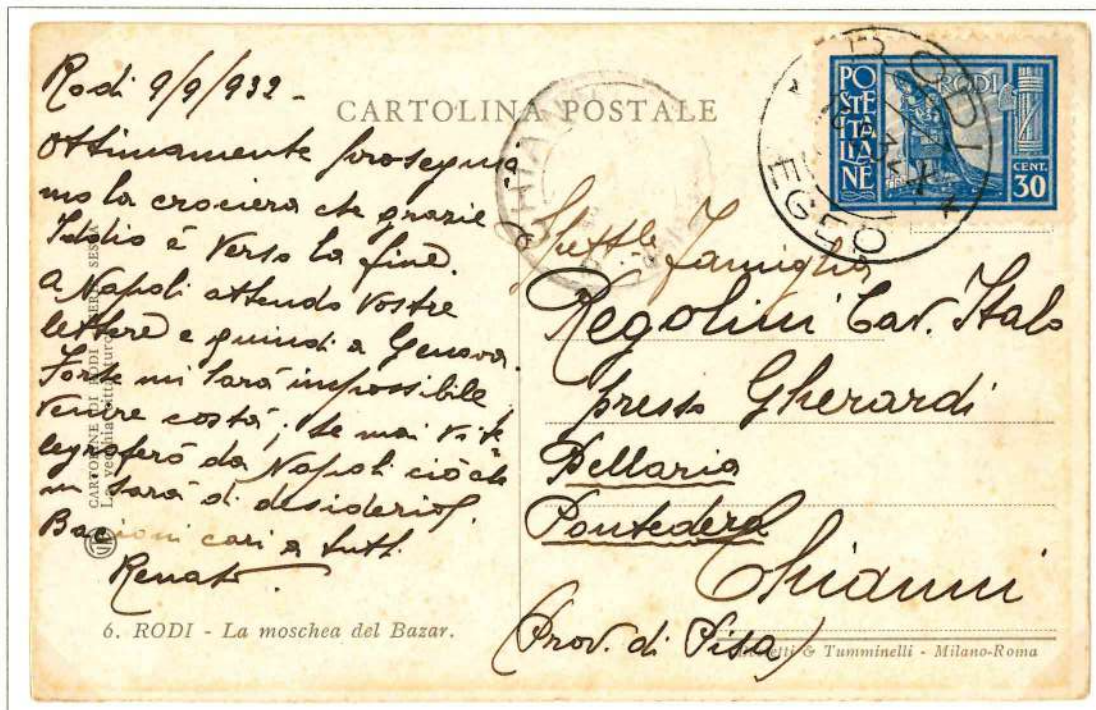 Rodi 9/9/932 -
CARTOLINA POSTALE
Ottimamente proseguia
mo la crociera che grazie
Iddio è verso la fine.
A Napoli attendo vostre
lettere e quindi a Genova.
Forse mi sarà impossibile
venire costà; se mai vi te
legraferò da Napoli ciò che
mi sarà di desiderio.
Bacioni cari a tutti.
Renato
CARTOLINE DI RODI
La vecchia città turca
6. RODI - La moschea del Bazar.
POSTE ITALIANE
RODI
CENT. 30
RODI
EGEO
Spett.le famiglia
Regolini Cav. Italo
presso Gherardi
Pontedera
Chianni
(Prov. di Pisa)
& Tumminelli - Milano-Roma